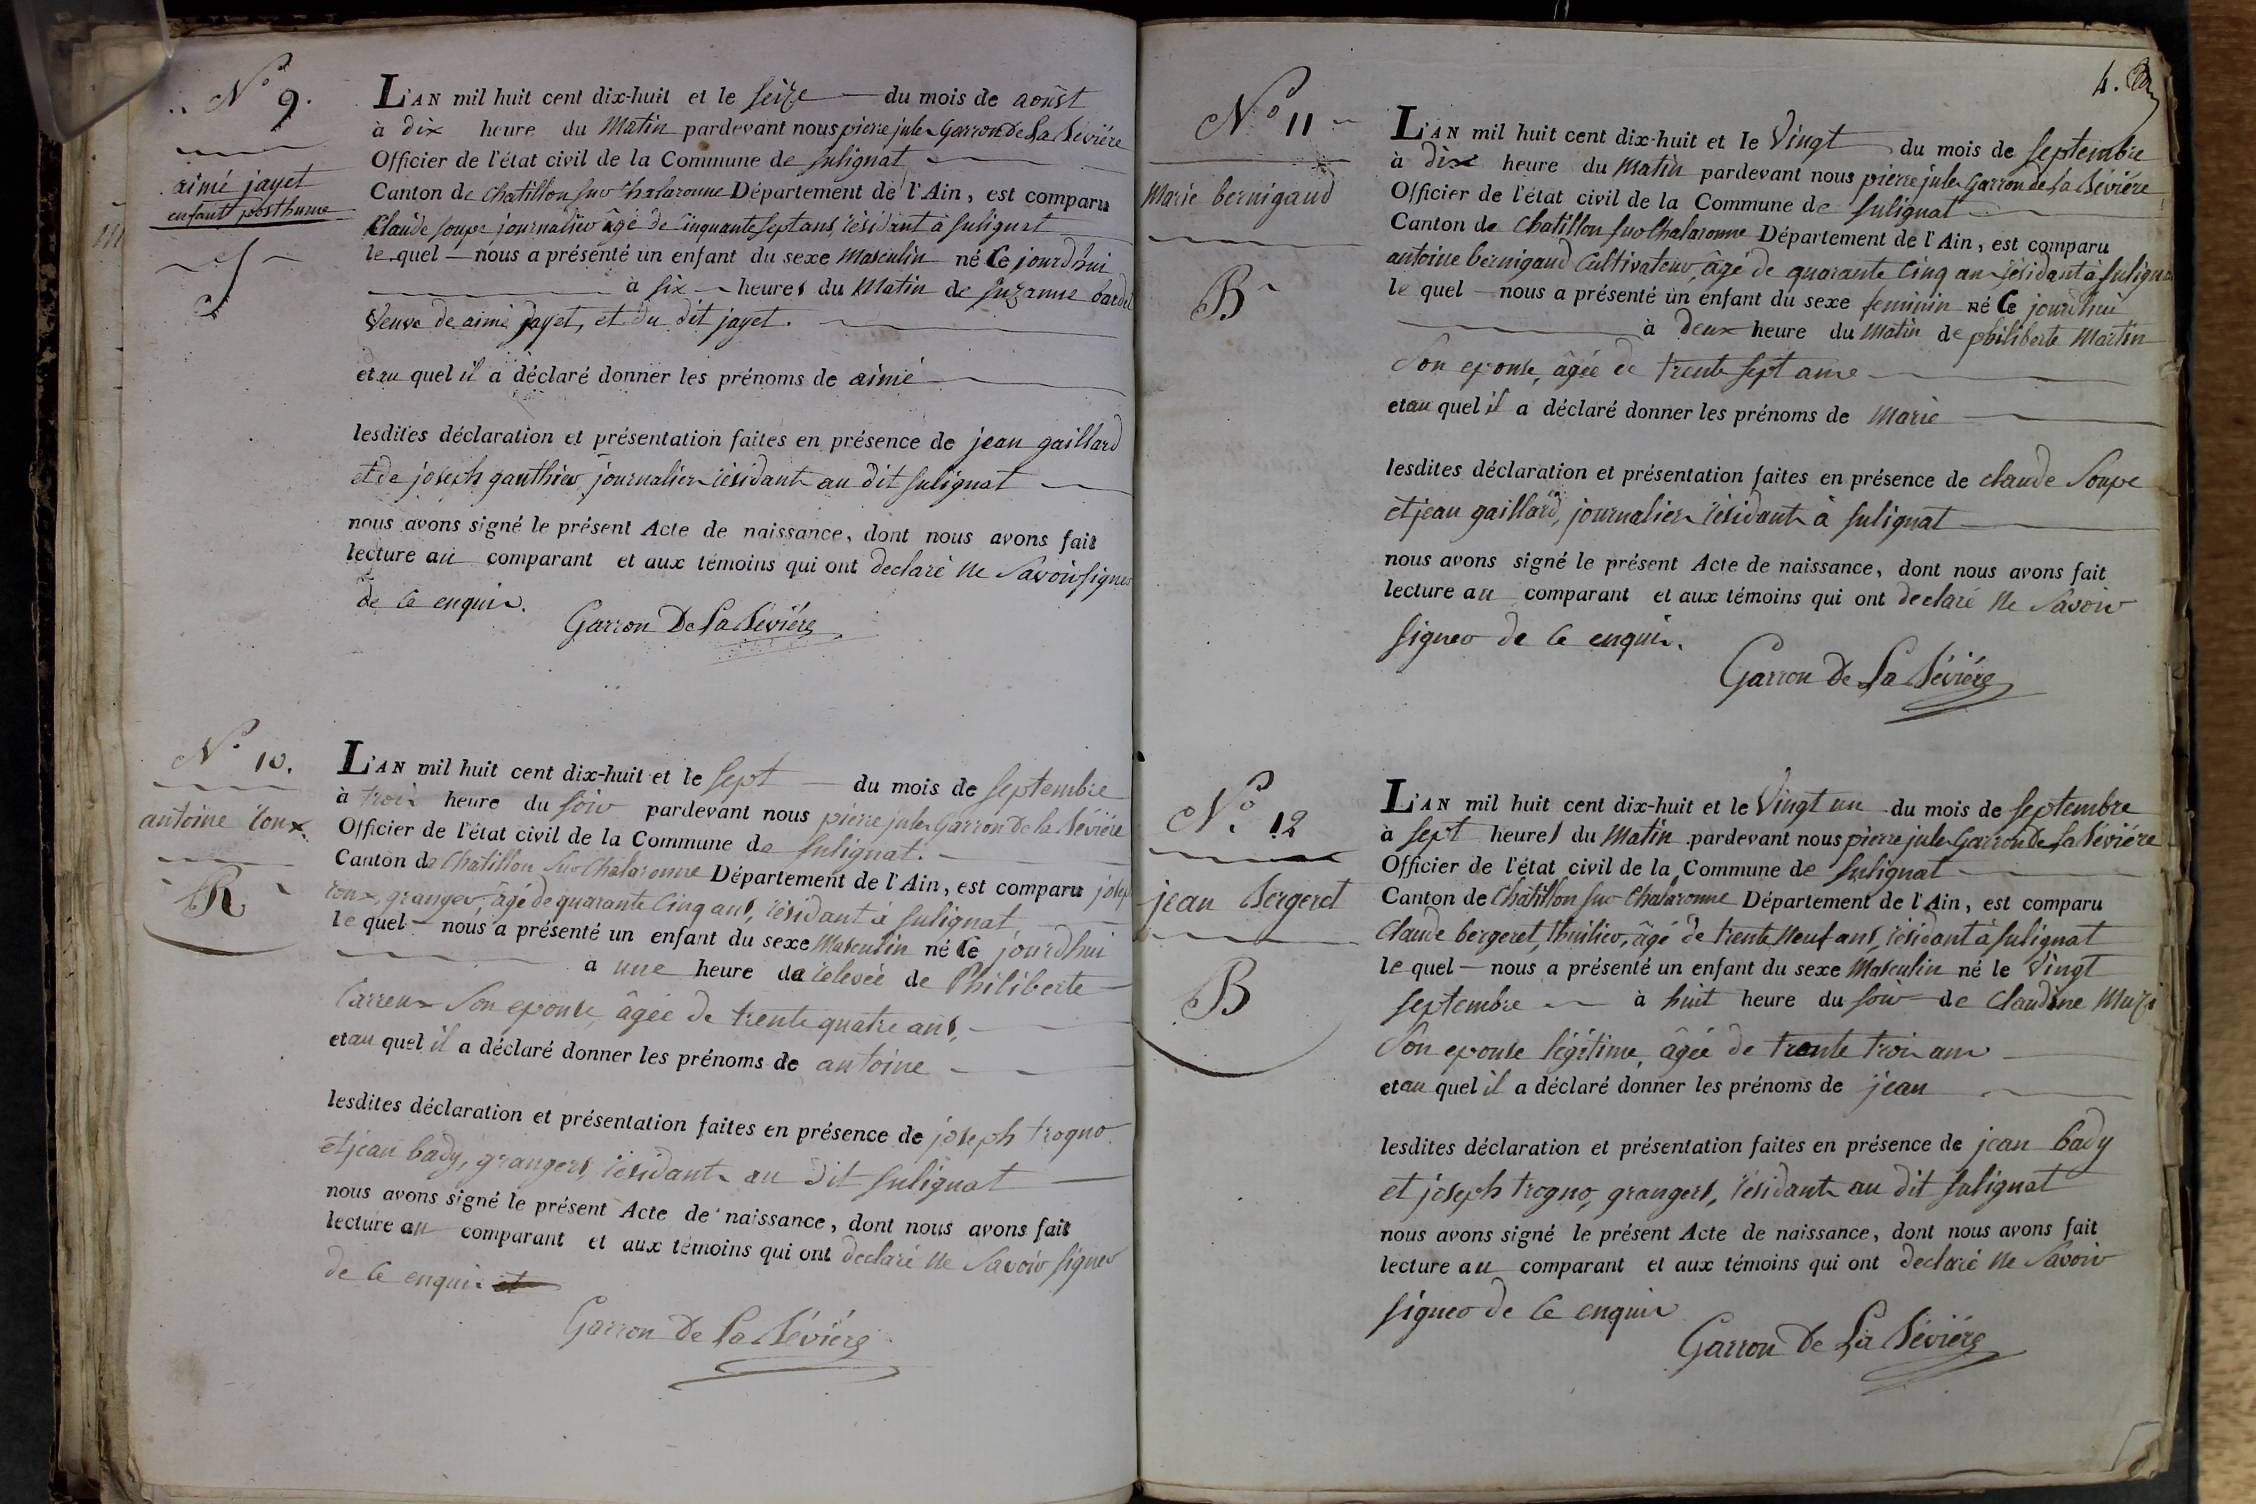 N° 9.
aimé jayet
enfant posthume
J
L'AN mil huit cent dix-huit et le seize du mois de aoust
à dix heure du Matin pardevant nous pierre jules Garron De La Séviére
Officier de l'état civil de la Commune de Sulignat
Canton de Chatillon sur Chalaronne Département de l'Ain, est comparu
Claude soupe journalier âgé de Cinquante sept ans, résidant à Sulignat
le quel nous a présenté un enfant du sexe Masculin né Ce jourd'hui
à six heures du Matin de Suzanne
Veuve de aimé jayet, et du dit jayet.
et au quel il a déclaré donner les prénoms de aimé
lesdites déclaration et présentation faites en présence de jean gaillard
et de joseph gauthier journaliers résidants au dit Sulignat
nous avons signé le présent Acte de naissance, dont nous avons fait
lecture au comparant et aux témoins qui ont declaré ne Savoir signer
de Ce enquis.
Garron De La Séviére
N° 10.
antoine roux
R
L'AN mil huit cent dix-huit et le sept du mois de septembre
à trois heure du soir pardevant nous pierre jules Garron De la Séviére
Officier de l'état civil de la Commune de Sulignat.
Canton de Chatillon sur Chalaronne Département de l'Ain, est comparu josep
roux, granger, âgé de quarante Cinq ans, résidant à Sulignat
le quel nous a présenté un enfant du sexe Masculin né Ce jourdhui
à une heure de relevée de Philiberte
Carreux Son epouse, âgée de trente quatre ans,
et au quel il a déclaré donner les prénoms de antoine
lesdites déclaration et présentation faites en présence de joseph trogno
et jean bady, grangers, résidants au dit Sulignat
nous avons signé le présent Acte de naissance, dont nous avons fait
lecture au comparant et aux témoins qui ont declaré ne Savoir signer
de Ce enquis et
Garron De La Séviére
4.
N° 11
Marie bernigaud
B
L'AN mil huit cent dix-huit et le Vingt du mois de septembre
à dix heure du Matin pardevant nous pierre jules Garron de La Séviére
Officier de l'état civil de la Commune de Sulignat
Canton de Chatillon sur Chalaronne Département de l'Ain, est comparu
antoine bernigaud Cultivateur, âgé de quarante Cinq ans résidant à Suligna
le quel nous a présenté un enfant du sexe feminin né Ce jourdhui
à deux heure du Matin de philiberte Martin
Son epouse, âgée de trente sept ans
et au quel il a déclaré donner les prénoms de Marie
lesdites déclaration et présentation faites en présence de claude Soupe
et jean gaillard, journaliers résidants à Sulignat
nous avons signé le présent Acte de naissance, dont nous avons fait
lecture au comparant et aux témoins qui ont declaré ne Savoir
signer de Ce enquis.
Garron De La Séviére
N° 12
jean Bergeret
B
L'AN mil huit cent dix-huit et le Vingt un du mois de septembre
à sept heures du Matin pardevant nous pierre jules Garron De La Séviére
Officier de l'état civil de la Commune de Sulignat
Canton de Chatillon sur Chalaronne Département de l'Ain, est comparu
Claude bergeret, thuilier, âgé de trente neuf ans, résidant à Sulignat
le quel nous a présenté un enfant du sexe Masculin né le Vingt
septembre à huit heure du soir de Claudine
Son epouse légitime, âgée de trente trois ans
et au quel il a déclaré donner les prénoms de jean
lesdites déclaration et présentation faites en présence de jean bady
et joseph trogno, grangers, résidants au dit Sulignat
nous avons signé le présent Acte de naissance, dont nous avons fait
lecture au comparant et aux témoins qui ont declaré ne Savoir
signer de Ce enquis
Garron De La Séviére